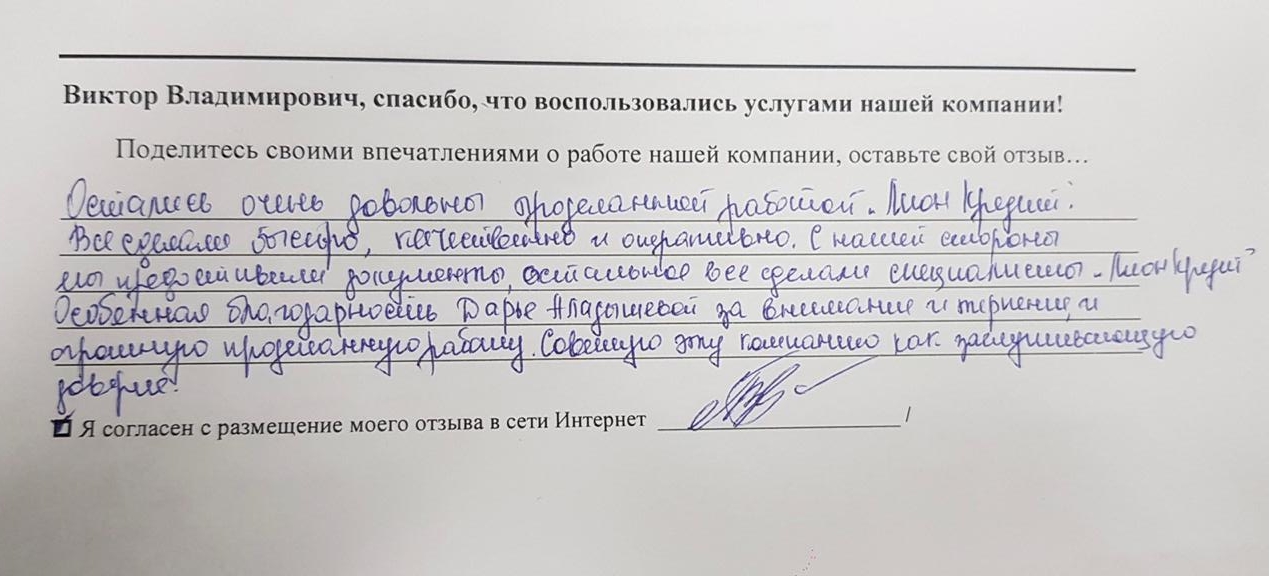 Виктор Владимирович, спасибо, что воспользовались услугами нашей компании!
Поделитесь своими впечатлениями о работе нашей компании, оставьте свой отзыв…
Остались очень довольны проделанной работой „Лион Кредит".
Все сделали быстро, качественно и оперативно. С нашей стороны
мы предоставили документы, остальное все сделали специалисты „Лион Кредит"
Особенная благодарность Дарье Аладышевой за внимание и терпение, и
огромную проделанную работу. Советую эту компанию как заслуживающую
доверие!
Я согласен с размещение моего отзыва в сети Интернет /